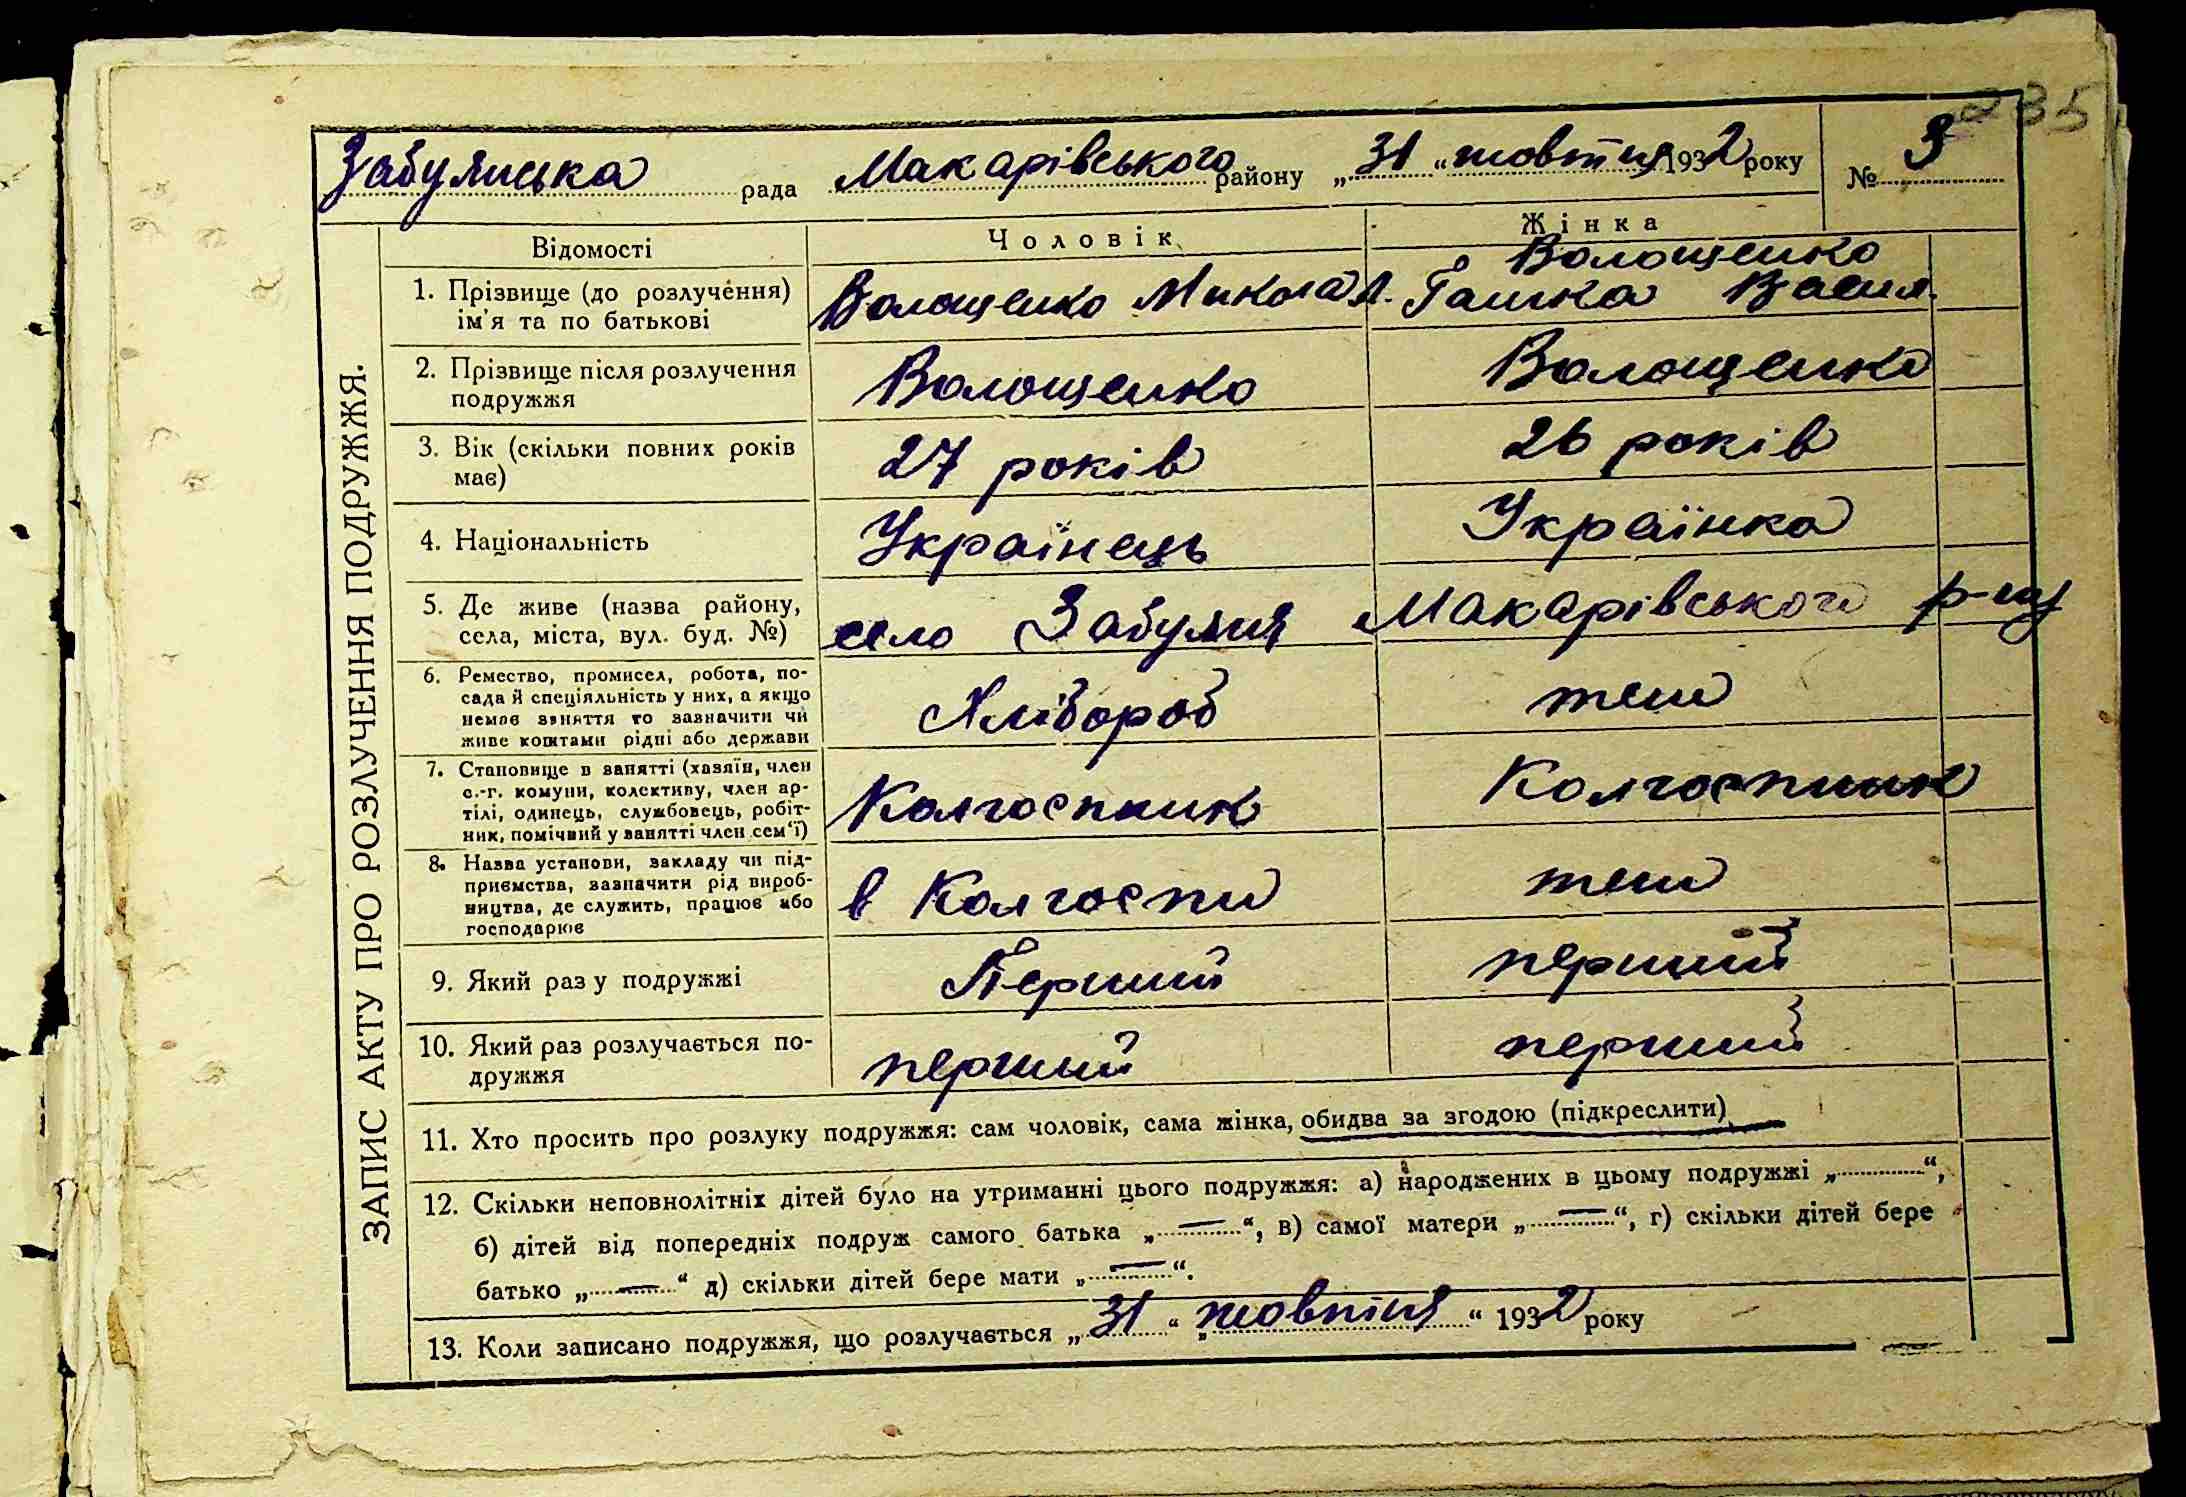 235
Забуянська рада Макарівського району „31“ жовтня 1932 року № 3
ЗАПИС АКТУ ПРО РОЗЛУЧЕННЯ ПОДРУЖЖЯ.
Відомості Чоловік Жінка
1. Прізвище (до розлучення) ім'я та по батькові
Волощенко Микола Л.
Волощенко
Ганка Васил.
2. Прізвище після розлучення подружжя
Волощенко Волощенко
3. Вік (скільки повних років має)
27 років 26 років
4. Національність Українець Українка
5. Де живе (назва району, села, міста, вул. буд. №)
село Забуяня Макарівського р-ну
6. Ремество, промисел, робота, по-
сада й спеціяльність у них, а якщо
немає заняття то зазначити чи
живе коштами рідні або держави
Хлібороб теж
7. Становище в занятті (хазяїн, член
с.-г. комуни, колективу, член ар-
тілі, одинець, службовець, робіт-
ник, помічний у занятті член сем'ї)
Колгоспник Колгоспник
8. Назва установи, закладу чи під-
приємства, зазначити рід вироб-
ництва, де служить, працює або
господарює
в Колгоспи теж
9. Який раз у подружжі Перший перший
10. Який раз розлучається по-
дружжя
перший перший
11. Хто просить про розлуку подружжя: сам чоловік, сама жінка, обидва за згодою (підкреслити)
12. Скільки неповнолітніх дітей було на утриманні цього подружжя: а) народжених в цьому подружжі „ “,
б) дітей від попередніх подруж самого батька „—“, в) самої матери „—“, г) скільки дітей бере
батько „—“ д) скільки дітей бере мати „—“.
13. Коли записано подружжя, що розлучається „31“ „жовтня“ 1932 року